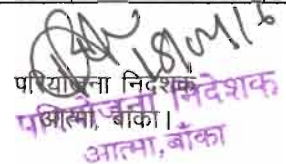 परियोजना निदेशक
आत्मा, बाँका।
परियोजना निदेशक
आत्मा, बाँका